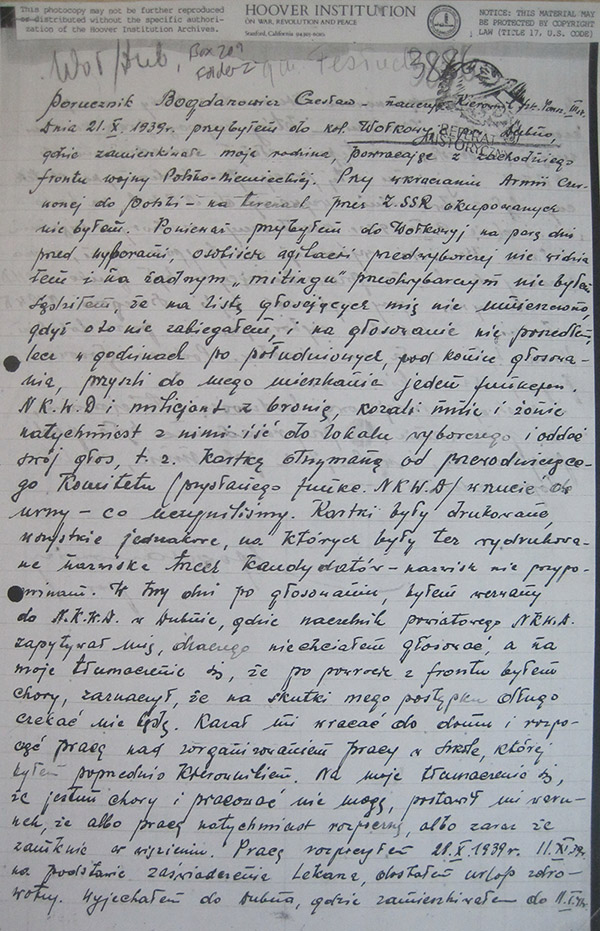 This photocopy may not be further reproduced
or distributed without the specific authori-
sation of the Hoover Institution Archives.
HOOVER INSTITUTION
ON WAR, REVOLUTION AND PEACE
Stanford, California 94305-6010
NOTICE: THIS MATERIAL MAY
BE PROTECTED BY COPYRIGHT
LAW (TITLE 17, U.S. CODE)
Box 209
Folder 2
388
REFERAT
HISTORYCZNY
Porucznik Bogdanowicz Czesław – Kierownik
Dnia 21.X.1939r. przybyłem do kol. Wołkowyj Dubno,
gdzie zamieszkiwała moja rodzina, powracając z zachodniego
frontu wojny Polsko-Niemieckiej. Przy wkraczaniu Armii Czer-
wonej do Polski – na terenach przez Z.SSR okupowanych
nie byłem. Ponieważ przybyłem do Wołkowyj na parę dni
przed wyborami, osobiście agitacji przedwyborczej nie widzia
łem i na żadnym „mitingu" przedwyborczym nie byłem
Sądziłem, że na listę głosujących mię nie umieszczono,
gdyż o to nie zabiegałem, i na głosowanie nie poszedłem,
lecz w godzinach po południowych, pod koniec głosowa-
nia, przyszli do mego mieszkania jeden funkcjon.
N.K.W.D i milicjant z bronią, kazali mnie i żonie
natychmiast z nimi iść do lokalu wyborczego i oddać
swój głos, t. z. kartkę otrzymaną od przewodniczące-
go Komitetu (przysłanego funkc. NKWD) wrzucić do
urny – co uczyniliśmy. Kartki były drukowane,
wszystkie jednakowe, na których były też wydrukowa-
ne nazwiska trzech kandydatów – nazwisk nie przypo-
minam. W trzy dni po głosowaniu, byłem wezwany
do N.K.W.D. w Dubnie, gdzie naczelnik powiatowego NKWD.
zapytywał mię, dlaczego nie chciałem głosować, a na
moje tłumaczenie się, że po powrocie z frontu byłem
chory, zaznaczył, że na skutki mego postępku długo
czekać nie będę. Kazał mi wracać do domu i rozpo-
cząć pracę nad zorganizowaniem pracy w szkole, której
byłem poprzednio kierownikiem. Na moje tłumaczenie się,
że jestem chory i pracować nie mogę, postawił mi waru-
nek, że albo pracę natychmiast rozpocznę, albo zaraz że
zamknie w więzieniu. Pracę rozpocząłem 28.X.1939r. 11.XI.39r.
na podstawie zaświadczenia lekarza, dostałem urlop zdro-
wotny. Wyjechałem do Dubna, gdzie zamieszkiwałem do